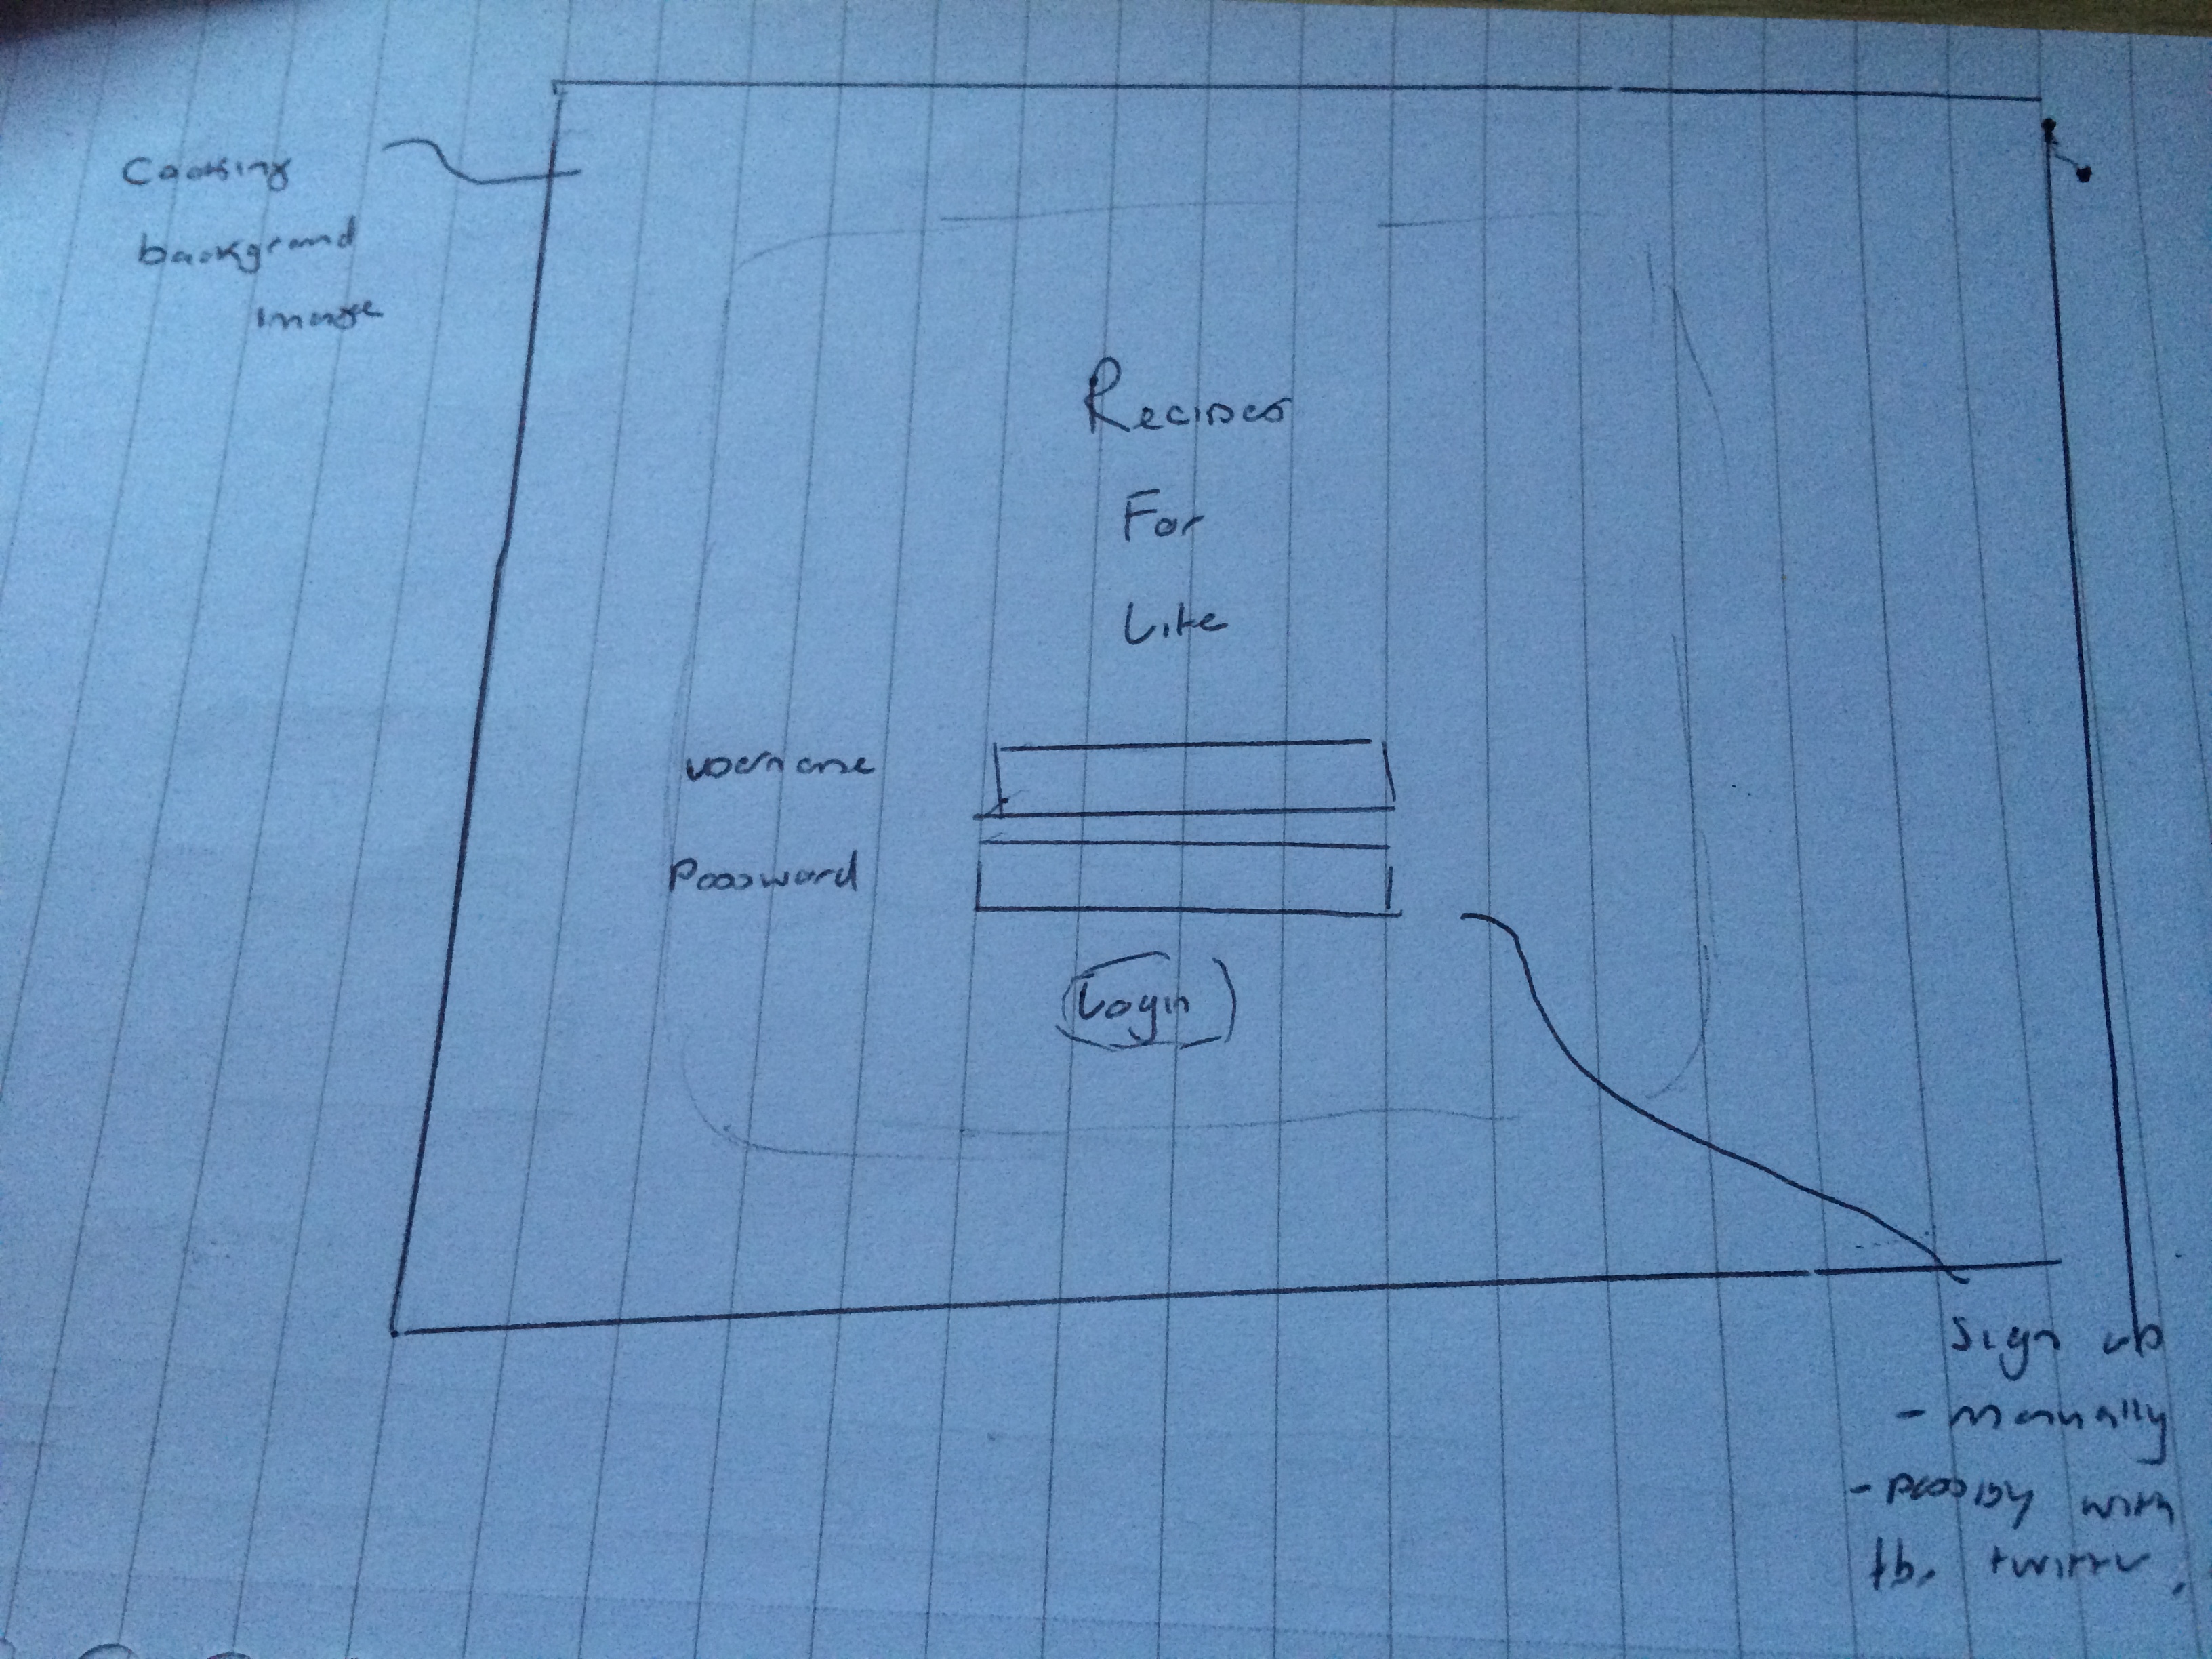 Cooking
background
image
Recipes
For
Life
username
Password
Login
Sign up
- manually
- possibly with
fb, twitter,